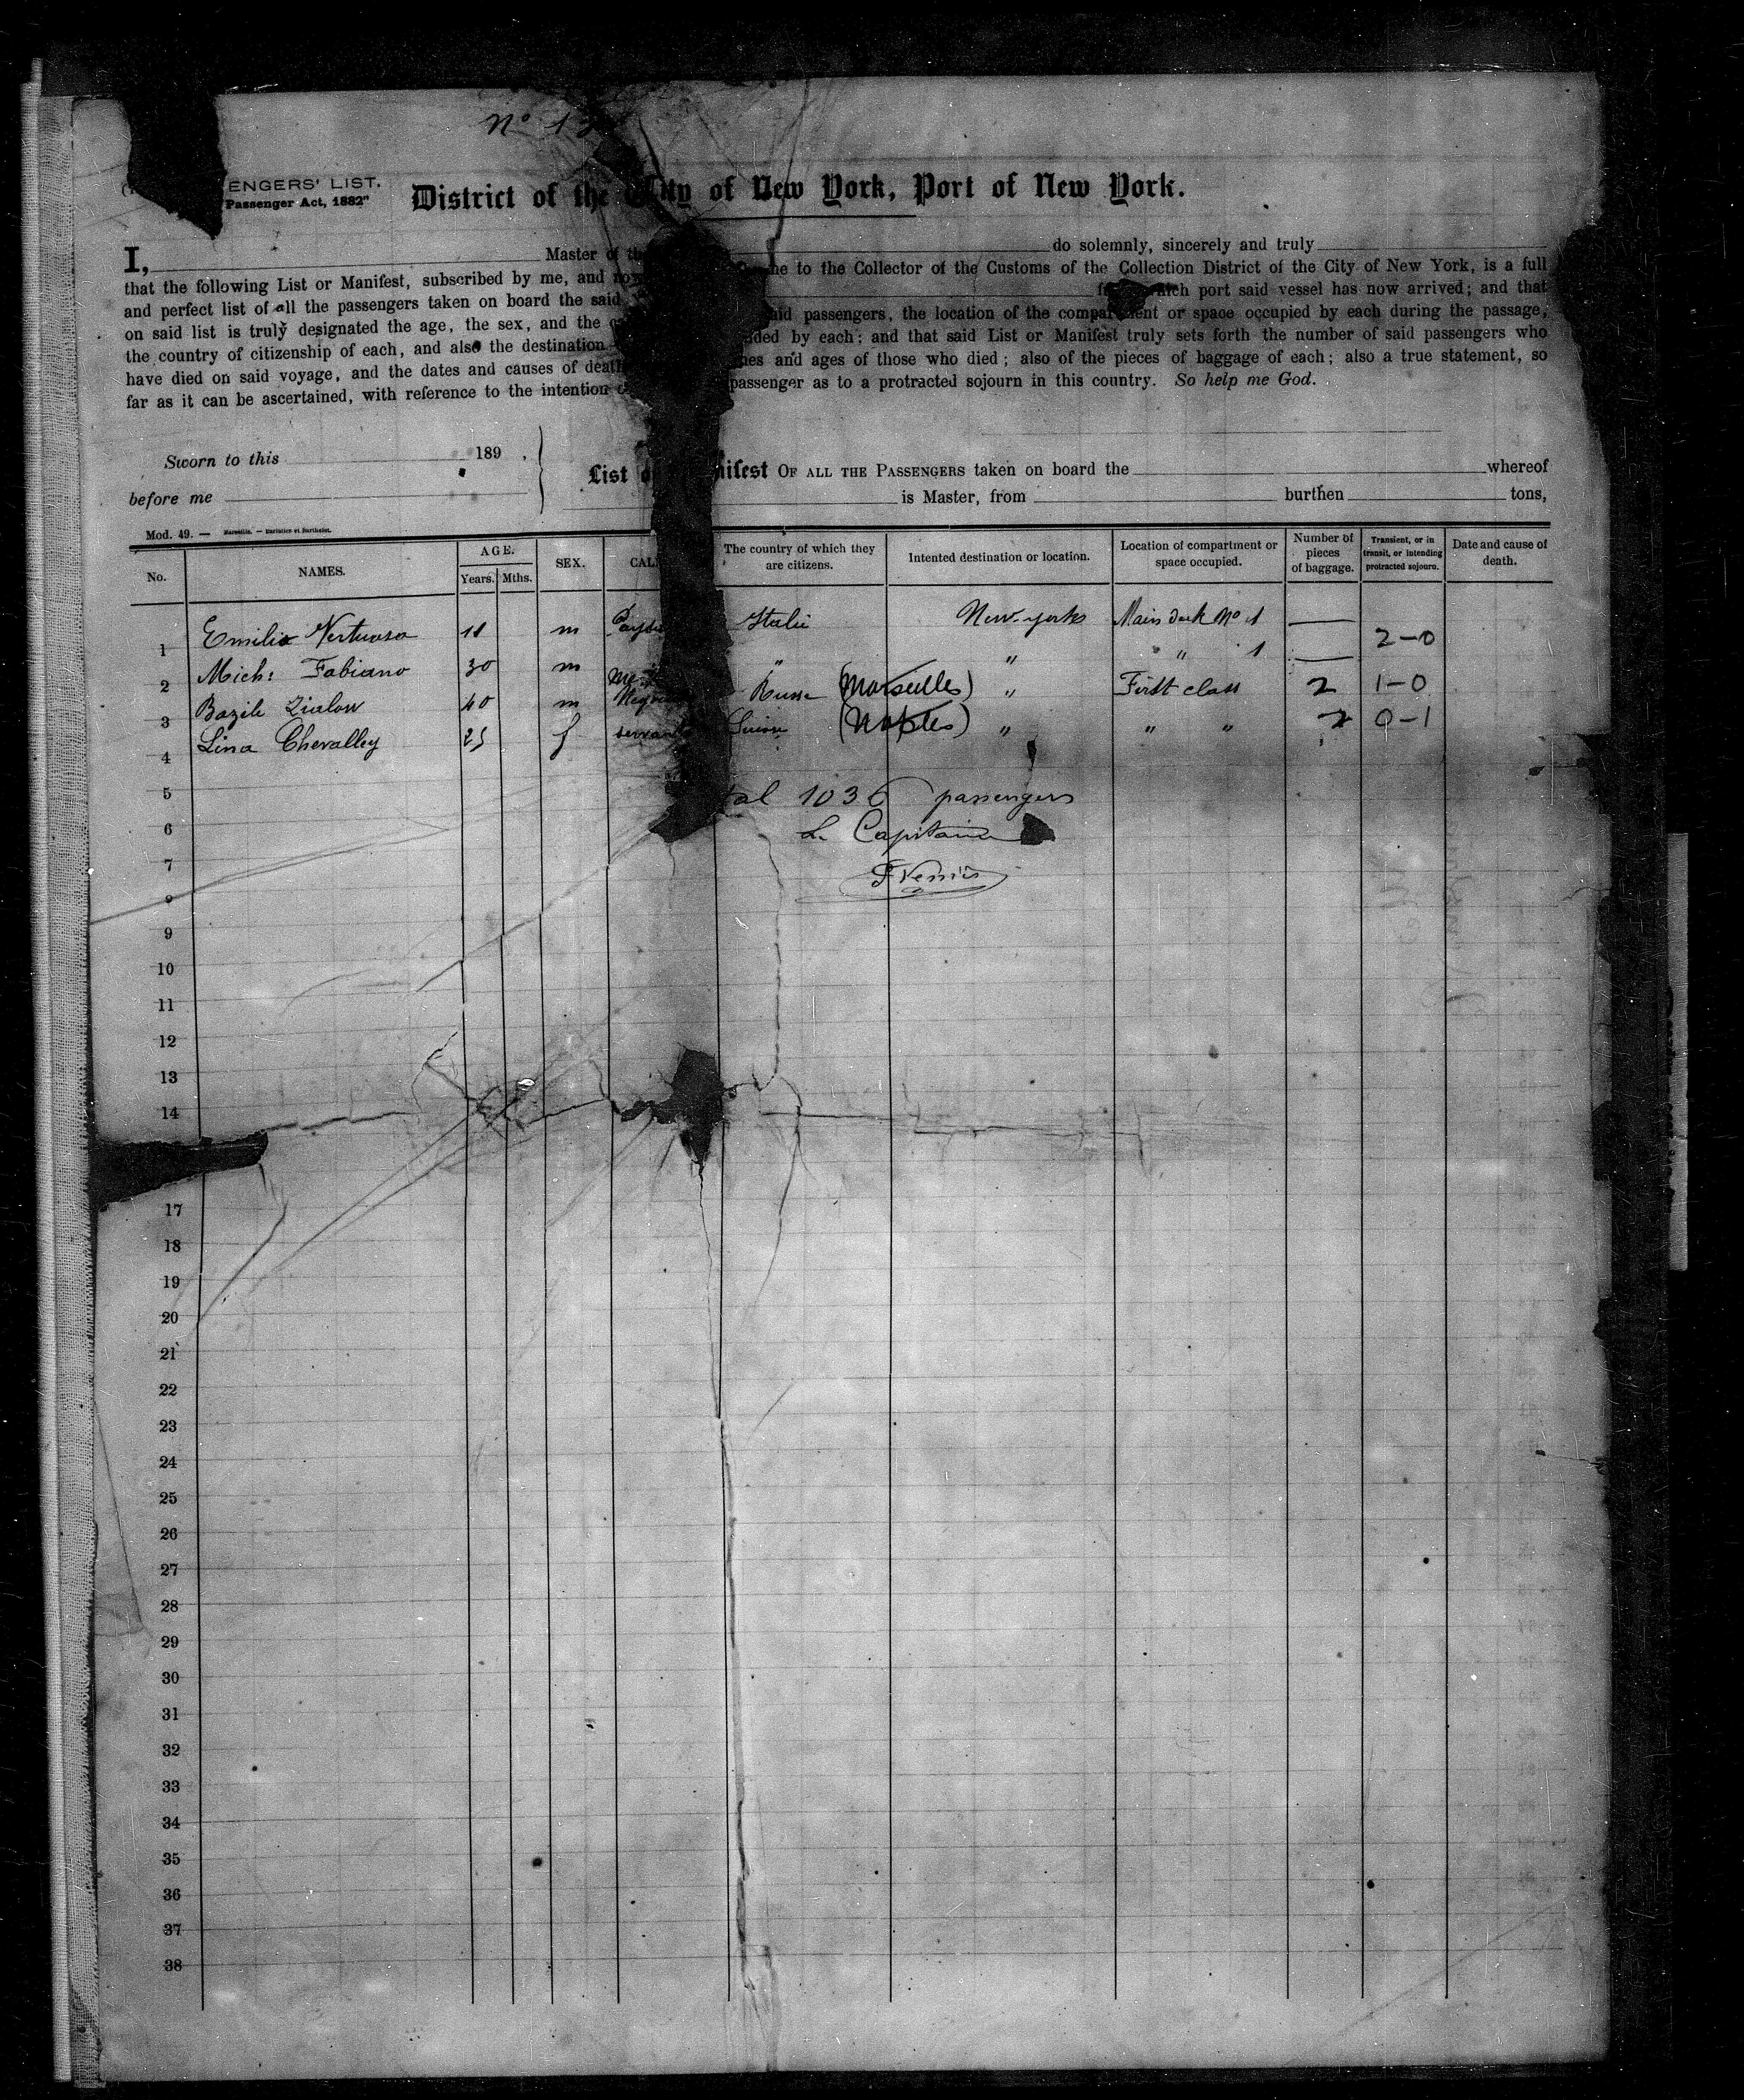 No 1
ENGERS' LIST.
Passenger Act, 1882"
District of the City of New York, Port of New York.
I, Master of th do solemnly, sincerely and truly
that the following List or Manifest, subscribed by me, and now me to the Collector of the Customs of the Collection District of the City of New York, is a full
and perfect list of all the passengers taken on board the said which port said vessel has now arrived; and that
on said list is truly designated the age, the sex, and the said passengers, the location of the compartment or space occupied by each during the passage,
the country of citizenship of each, and also the destination ded by each; and that said List or Manifest truly sets forth the number of said passengers who
have died on said voyage, and the dates and causes of death mes and ages of those who died; also of the pieces of baggage of each; also a true statement, so
far as it can be ascertained, with reference to the intention passenger as to a protracted sojourn in this country. So help me God.
Sworn to this 189 ,
before me
List o nifest OF ALL THE PASSENGERS taken on board the whereof
is Master, from burthen tons,
Mod. 49. — Marseille. — Barlatier et Barthelet.
No. NAMES. AGE. Years. Mths. SEX. CALL The country of which they are citizens. Intented destination or location. Location of compartment or space occupied. Number of pieces of baggage. Transient, or in transit, or intending protracted sojourn. Date and cause of death.
1 Emilio Vertuoso 18 m Italie New-yorks Main deck No 1 —
2 Mich: Fabiano 30 m " " " 1 — 2-0
3 Bazile 40 m Russe (Marseilles) " First class 2 1-0
4 Lina Chevalley 25 f servant Suisse (Naples) " " " 2 0-1
5
tal 1036 passengers
6
Le Capitaine
7
8
9
10
11
12
13
14
17
18
19
20
21
22
23
24
25
26
27
28
29
30
31
32
33
34
35
36
37
38